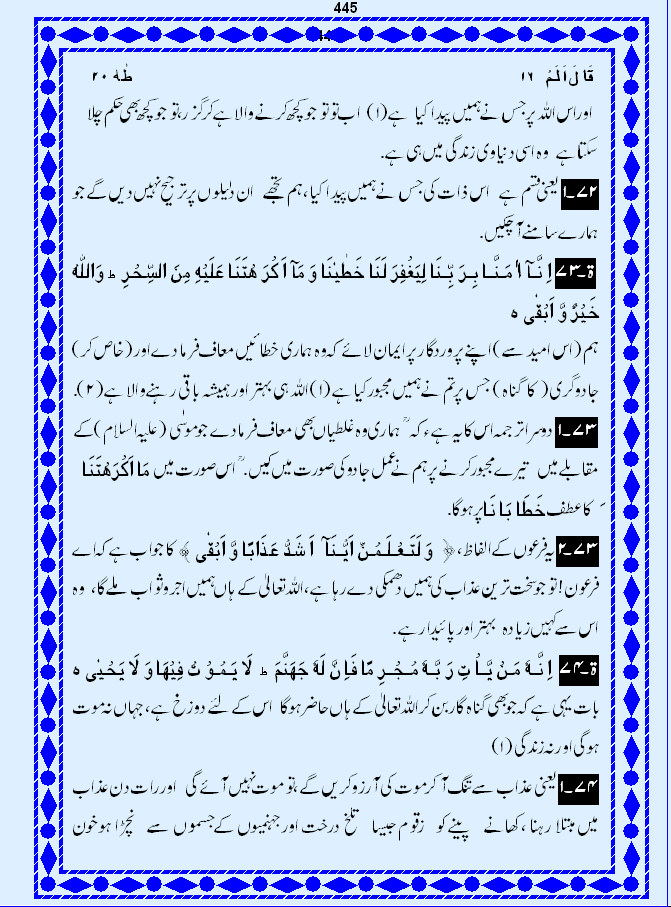 445
قَالَ اَلَمْ ۱۶ طٰهٰ ۲۰
اور اس اللہ پر جس نے ہمیں پیدا کیا ہے (۱) اب تو تو جو کچھ کرنے والا ہے کر گزر ، تو جو کچھ بھی حکم چلا
سکتا ہے وہ اسی دنیاوی زندگی میں ہی ہے.
۷۲۔۱ یعنی قسم ہے اس ذات کی جس نے ہمیں پیدا کیا، ہم تجھے ان دلیلوں پر ترجیح نہیں دیں گے جو
ہمارے سامنے آ چکیں.
ۃ۔۷۳ اِنَّآ اٰ مَنَّا بِرَ بِّنَا لِيَغْفِرَ لَنَا خَطٰيٰنَا وَ مَآ اَ كْرَ هْتَنَا عَلَيْهِ مِنَ السِّحْرِ ط وَاللّٰهُ
خَيْرٌ وَّ اَبْقٰى ه
ہم (اس امید سے) اپنے پروردگار پر ایمان لائے کہ وہ ہماری خطائیں معاف فرما دے اور (خاص کر)
جادوگری (کا گناہ) جس پر تم نے ہمیں مجبور کیا ہے (۱) اللہ ہی بہتر اور ہمیشہ باقی رہنے والا ہے (۲).
۷۳۔۱ دوسرا ترجمہ اس کا یہ ہے، کہ " ہماری وہ غلطیاں بھی معاف فرما دے جو موسٰی (علیہ السلام) کے
مقابلے میں تیرے مجبور کرنے پر ہم نے عمل جادو کی صورت میں کیں. " اس صورت میں مَا اَكْرَهْتَنَا
کا عطف خَطَا يَا نَا پر ہوگا.
۷۳۔۲ یہ فرعون کے الفاظ، ﴿ وَ لَتَعْلَمُنَّ اَيُّنَآ اَ شَدُّ عَذَابًا وَّ اَبْقٰى ﴾ کا جواب ہے کہ اے
فرعون! تو جو سخت ترین عذاب کی ہمیں دھمکی دے رہا ہے، اللہ تعالٰی کے ہاں ہمیں اجر و ثواب ملے گا، وہ
اس سے کہیں زیادہ بہتر اور پائیدار ہے.
ۃ۔۷۴ اِنَّهٗ مَنْ يَّاْ تِ رَ بَّهٗ مُجْرِ مًا فَاِنَّ لَهٗ جَهَنَّمَ ط لَا يَمُوْ تُ فِيْهَا وَ لَا يَحْيٰى ه
بات یہی ہے کہ جو بھی گناہ گار بن کر اللہ تعالٰی کے ہاں حاضر ہوگا اس کے لئے دوزخ ہے، جہاں نہ موت
ہوگی اور نہ زندگی (۱)
۷۴۔۱ یعنی عذاب سے تنگ آ کر موت کی آرزو کریں گے، تو موت نہیں آئے گی اور رات دن عذاب
میں مبتلا رہنا، کھانے پینے کو زقوم جیسا تلخ درخت اور جہنمیوں کے جسموں سے نچڑا ہو خون